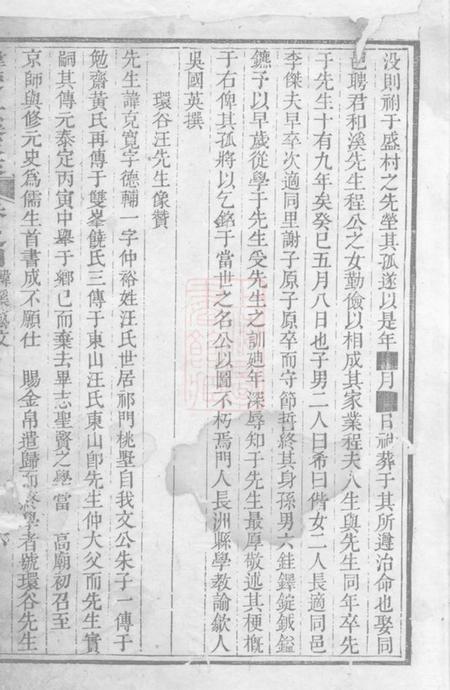 没則祔于盛村之先塋其孤遂以是年 月 日祔葬于其所遵治命也娶同
邑聘君和溪先生程公之女勤儉以相成其家業程夫人生與先生同年卒先
于先生十有九年癸巳五月八日也子男二人曰希曰偕女二人長適同邑
李傑夫早卒次適同里謝子原子原卒而守節誓終其身孫男六銈鐸錠鉞鎰
鑣予以早歲從學于先生受先生之訓廸年深辱知于先生最厚敬述其梗概
于右俾其孤將以乞銘于當世之名公以圖不朽焉門人長洲縣學教諭歙人
吳國英撰
環谷汪先生像贊
先生諱克寬字德輔一字仲裕姓汪氏世居祁門桃墅自我文公朱子一傳于
勉齋黃氏再傳于雙峯饒氏三傳于東山汪氏東山卽先生仲大父而先生實
嗣其傳元泰定丙寅中舉于鄉已而棄去畢志聖賢之學當 高廟初召至
京師與修元史爲儒生首書成不願仕 賜金帛遣歸而終學者號環谷先生